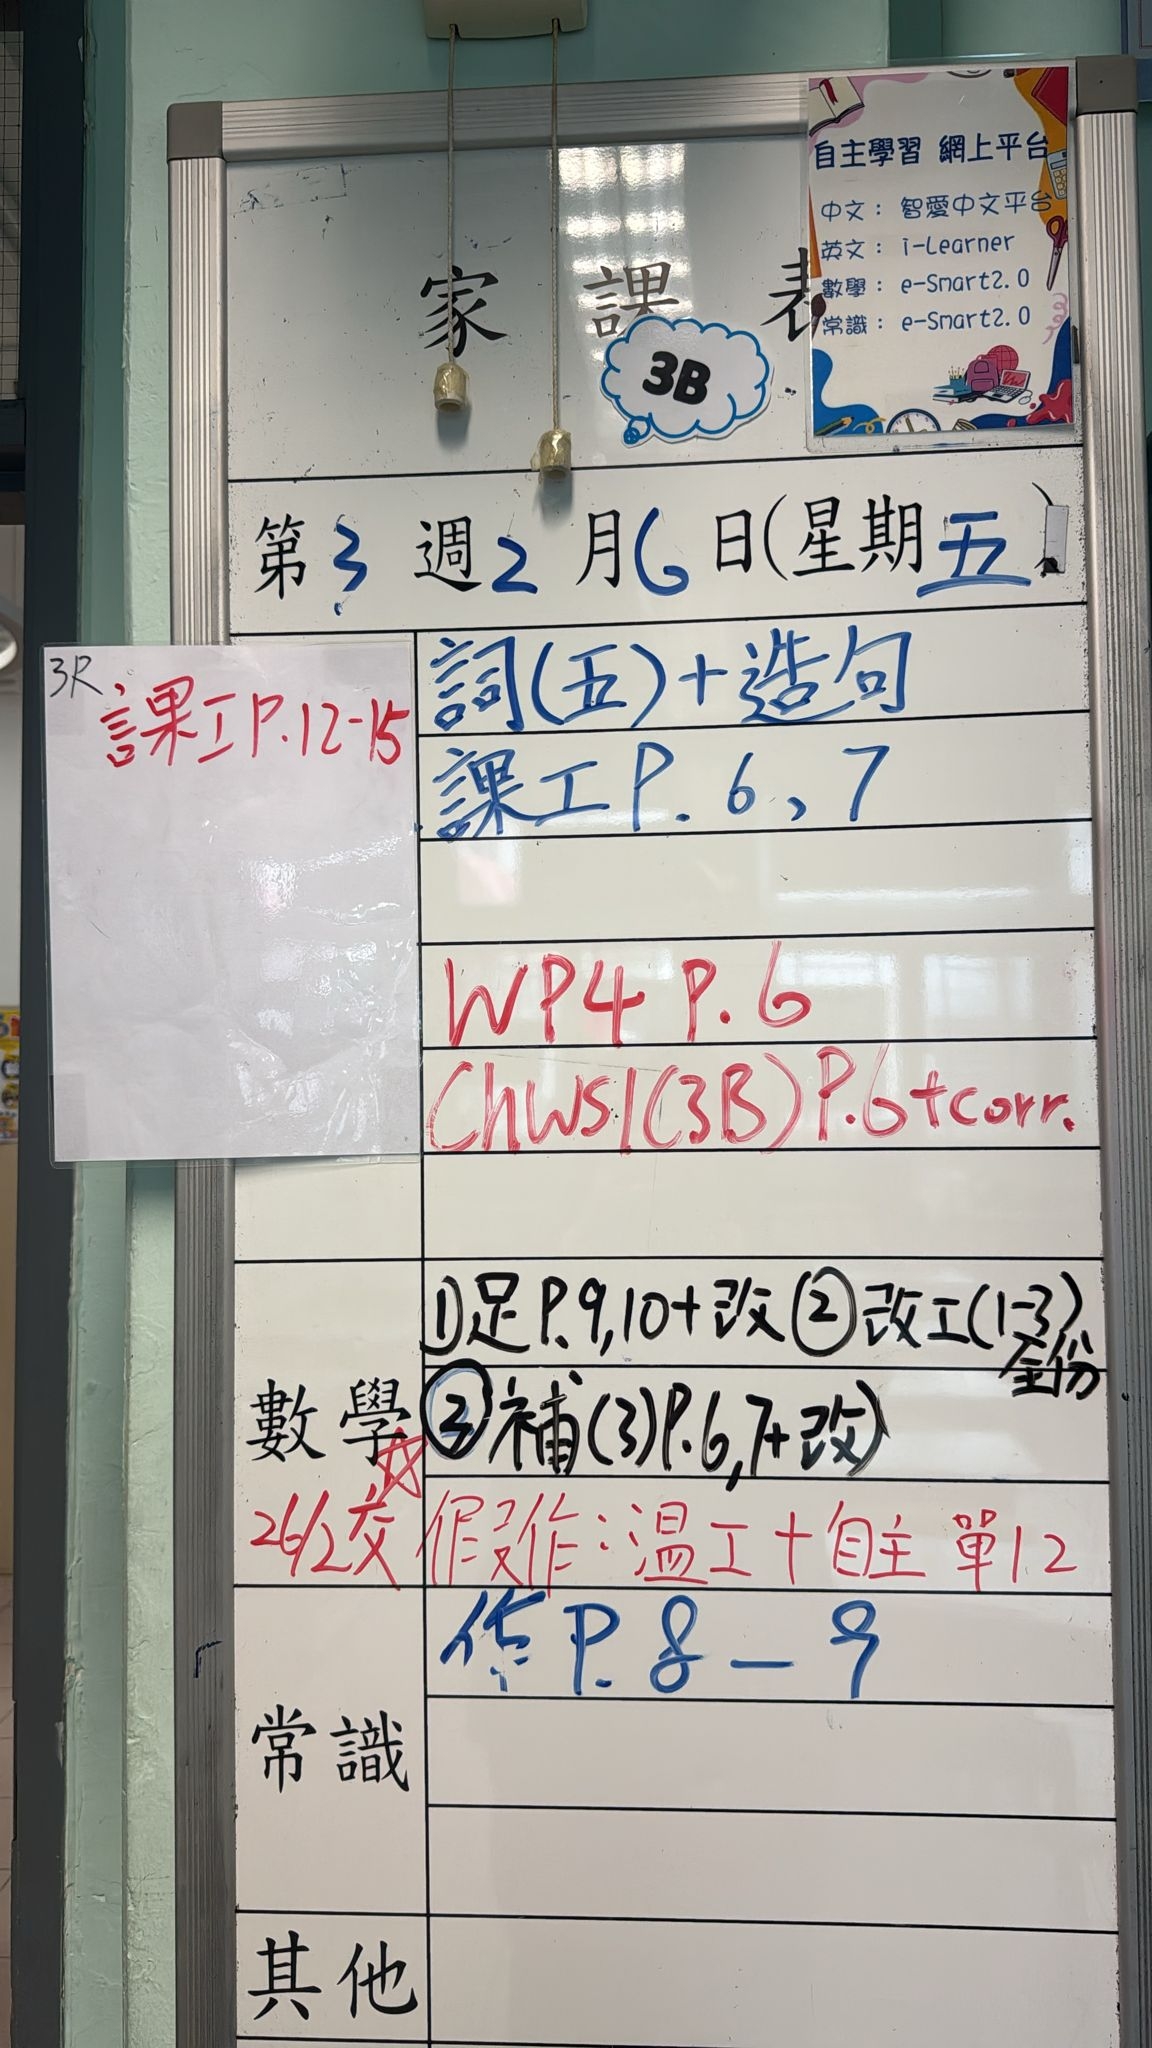 自主學習 網上平台
中文： 智愛中文平台
英文： i-Learner
數學： e-Smart2.0
常識： e-Smart2.0
家 課 表
3B
第 3 週 2 月 6 日(星期 五 )
3R
課工P.12-15
詞(五)+造句
課工P. 6、7
WP4 P.6
ChWS1(3B)P.6+corr.
數 學
①足P.9,10+改②改工(1-3)
全份
③補(3)P.6,7+改)
26/2交
假作：溫工+自主 單12
常 識
作P. 8-9
其 他